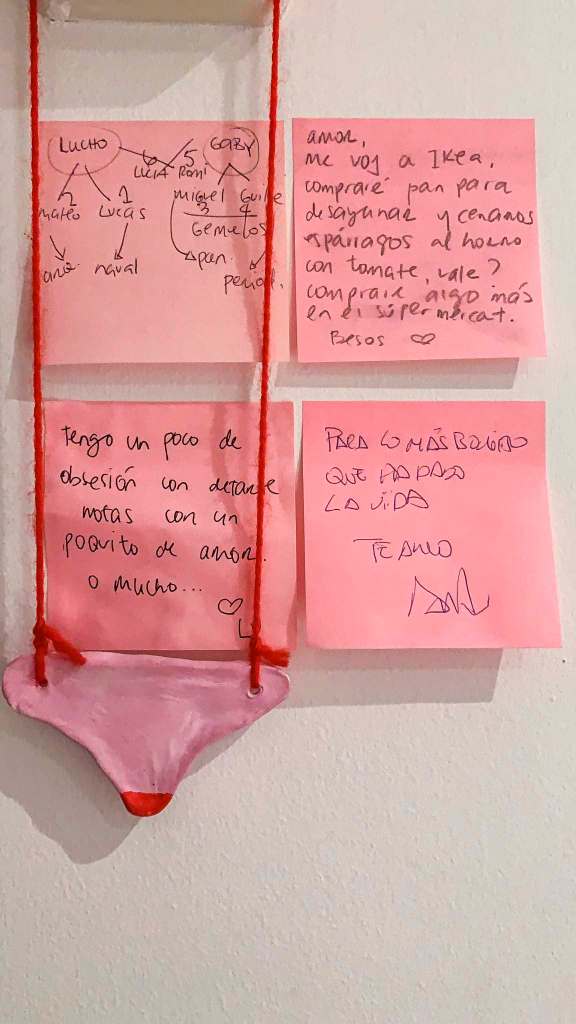 LUCHO GABY
6 5
Lucia Romi
2 1 Miguel Guille
Mateo Lucas 3 4
Gemelos
naval pan.
period.
amor,
me voy a Ikea,
compraré pan para
desayunar y cenamos
espárragos al horno
con tomate, vale?
compraré algo más
en el súper mercat.
Besos
tengo un poco de
obsesión con dejarte
notas con un
poquito de amor.
o mucho...
L
PARA LO MÁS BONITO
QUE ME HA DADO
LA VIDA
TE AMO